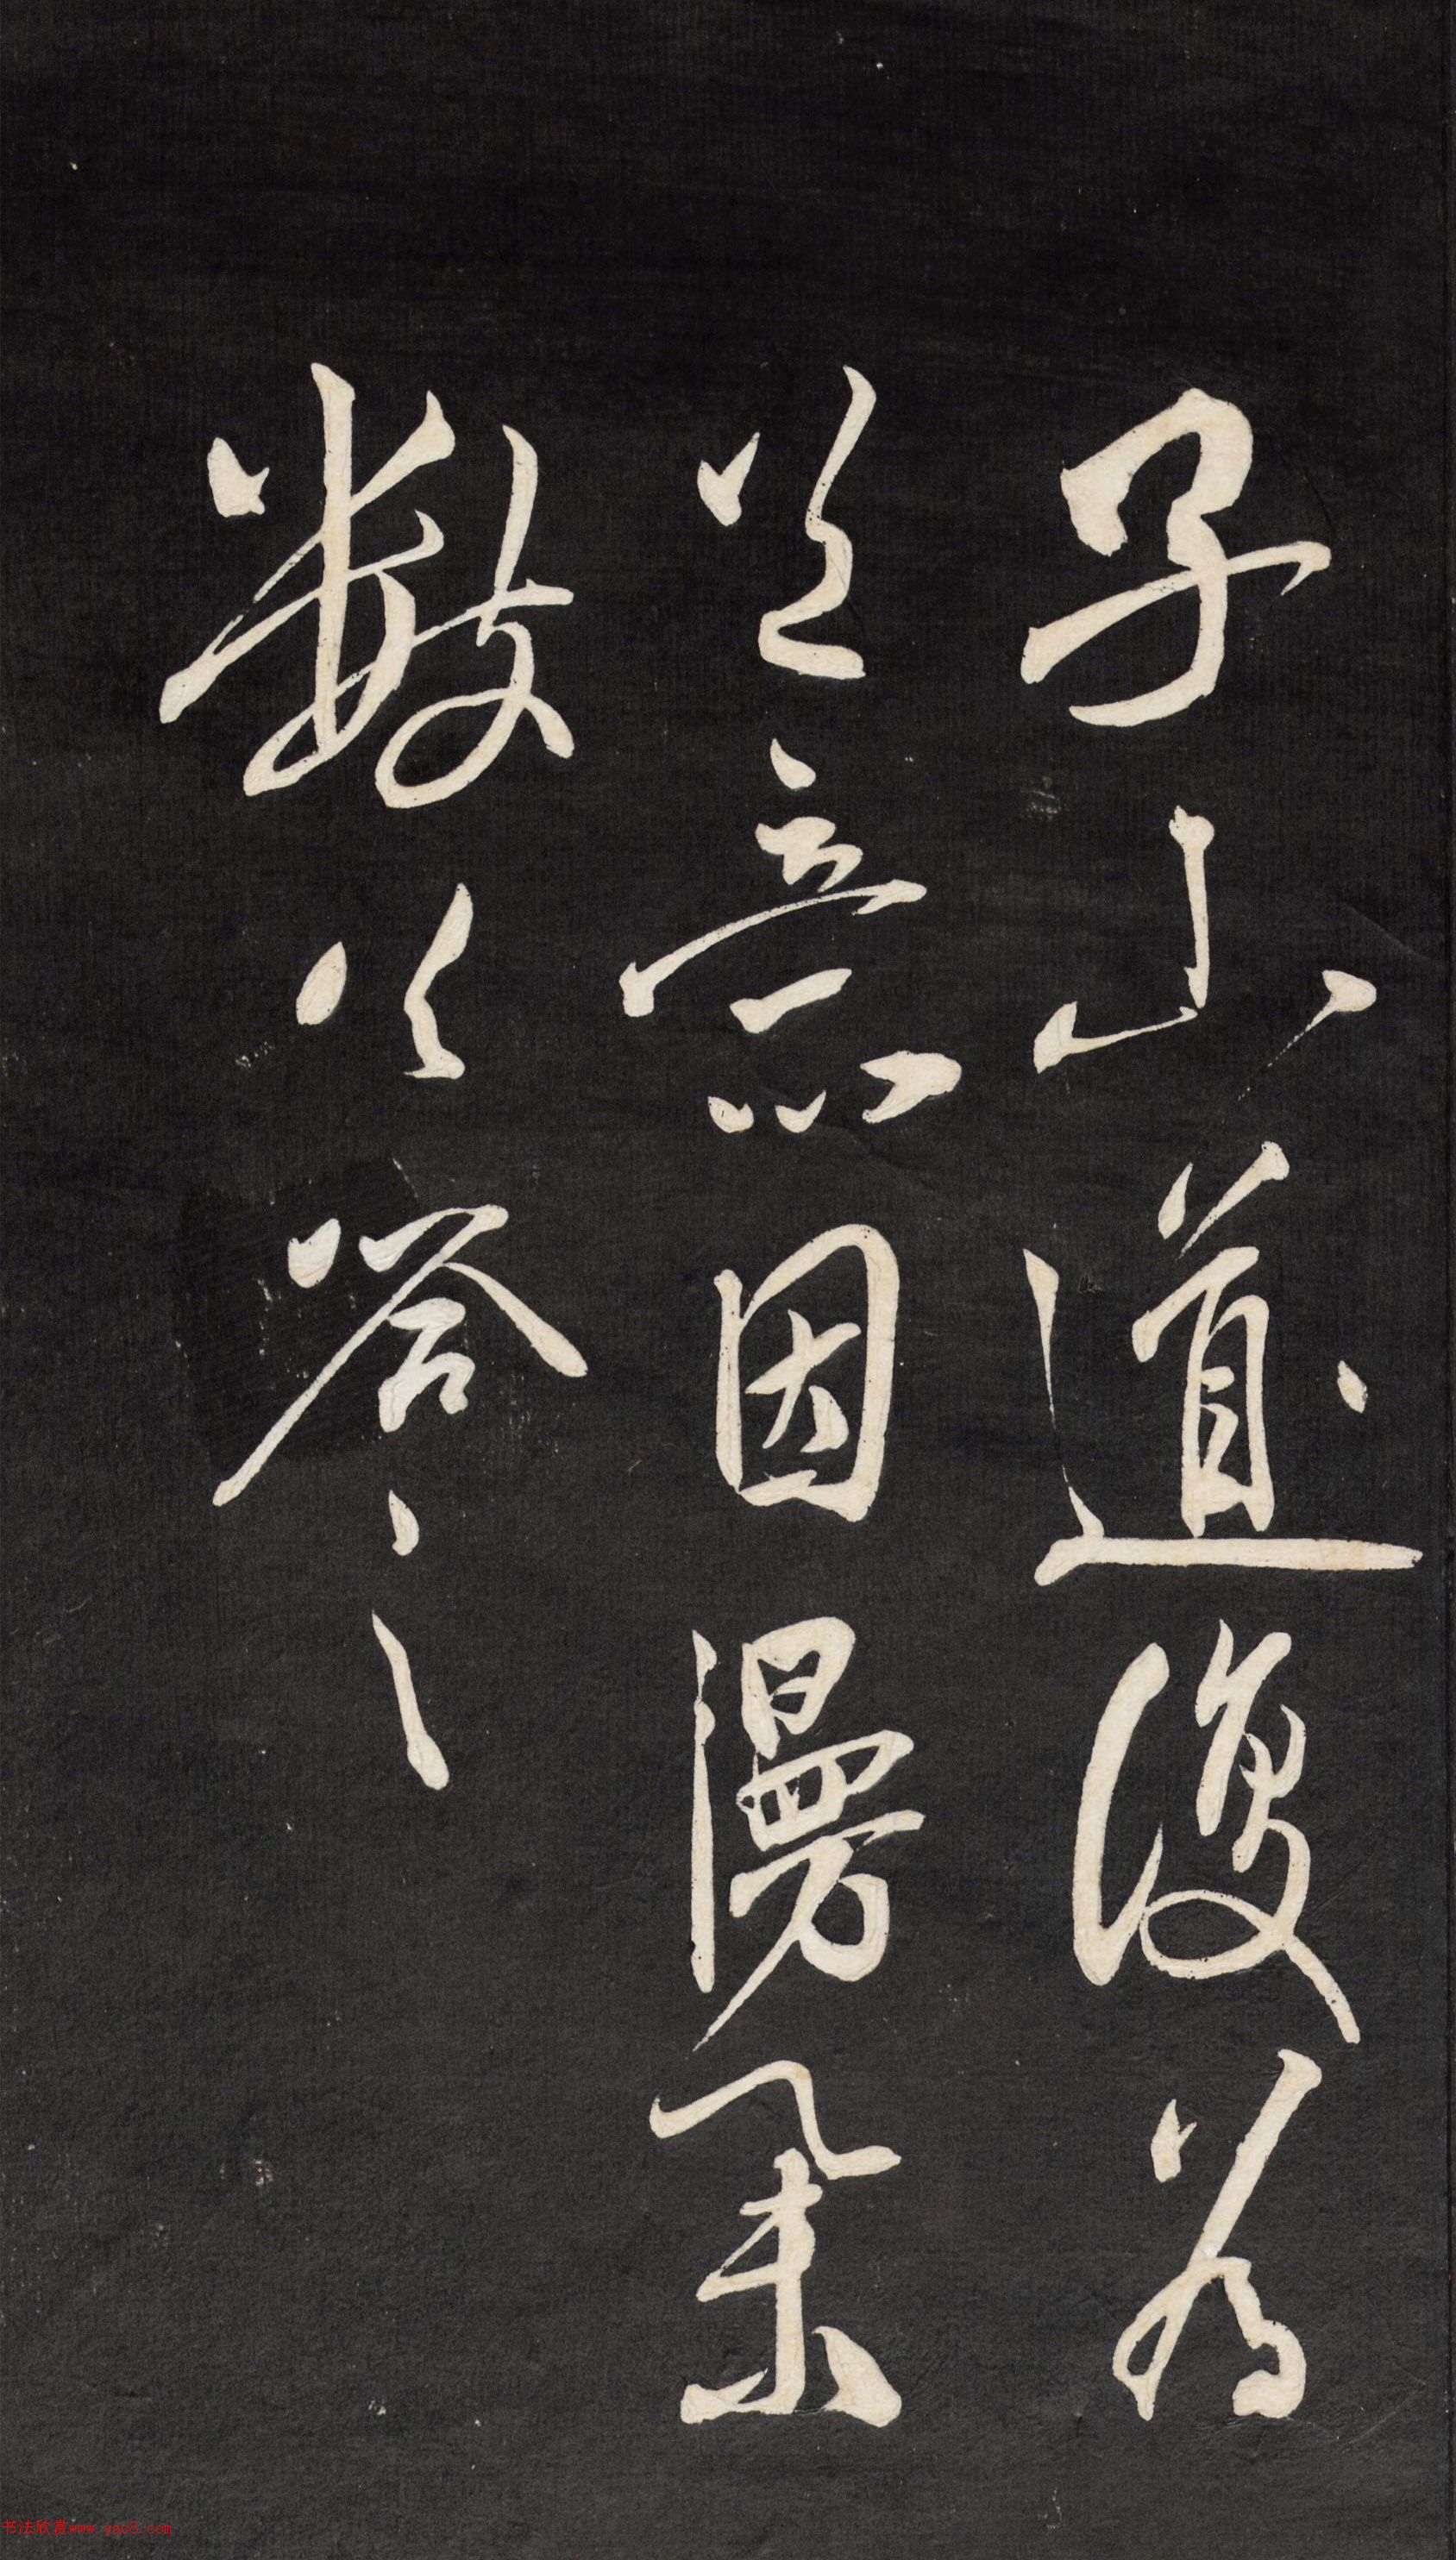 子山道復爲
此意因漫錄
數以答之
书法欣赏www.yac8.com